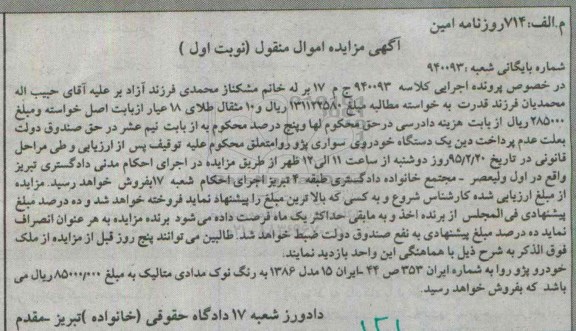 م.الف:۷۱۴روزنامه امین
آگهی مزایده اموال منقول (نوبت اول )
شماره بایگانی شعبه :۹۴۰۰۹۳
در خصوص پرونده اجرایی کلاسه ۹۴۰۰۹۳ ج م ۱۷ بر له خانم مشکناز محمدی فرزند آزاد بر علیه آقای حبیب اله
محمدیان فرزند قدرت به خواسته مطالبه مبلغ ۱۳۱۱۲۲۵۸۰ ریال و۱۰ مثقال طلای ۱۸ عیار ازبابت اصل خواسته ومبلغ
۲۸۵۰۰۰ ریال از بابت هزینه دادرسی درحق محکوم لها وپنج درصد محکوم به از بابت نیم عشر در حق صندوق دولت
بعلت عدم پرداخت دین یک دستگاه خودروی سواری پژو روامتعلق محکوم علیه توقیف پس از ارزیابی و طی مراحل
قانونی در تاریخ ۹۵/۲/۲۰روز دوشنبه از ساعت ۱۱ الی۱۲ ظهر از طریق مزایده در اجرای احکام مدنی دادگستری تبریز
واقع در اول ولیعصر - مجتمع خانواده دادگستری طبقه ۴ تبریز اجرای احکام شعبه ۱۷بفروش خواهد رسید. مزایده
از مبلغ ارزیابی شده کارشناس شروع و به کسی که بالا ترین مبلغ را پیشنهاد نماید فروخته خواهد شد و ده درصد مبلغ
پیشنهادی فی المجلس از برنده اخذ و به مابقی حداکثر یک ماه فرصت داده می شود برنده مزایده به هر عنوان انصراف
نماید ده درصد مبلغ پیشنهادی به نفع صندوق دولت ضبط خواهد شد. طالبین می توانند پنج روز قبل از مزایده از ملک
فوق الذکر به شرح ذیل با هماهنگی این واحد بازدید نمایند.
خودرو پژو روا به شماره ایران ۳۵۳ ص ۴۴ -ایران ۱۵ مدل ۱۳۸۶ به رنگ نوک مدادی متالیک به مبلغ ۸۵۰۰۰/۰۰۰ریال می
باشد که بفروش خواهد رسید.
دادورز شعبه ۱۷ دادگاه حقوقی (خانواده )تبریز -مقدم